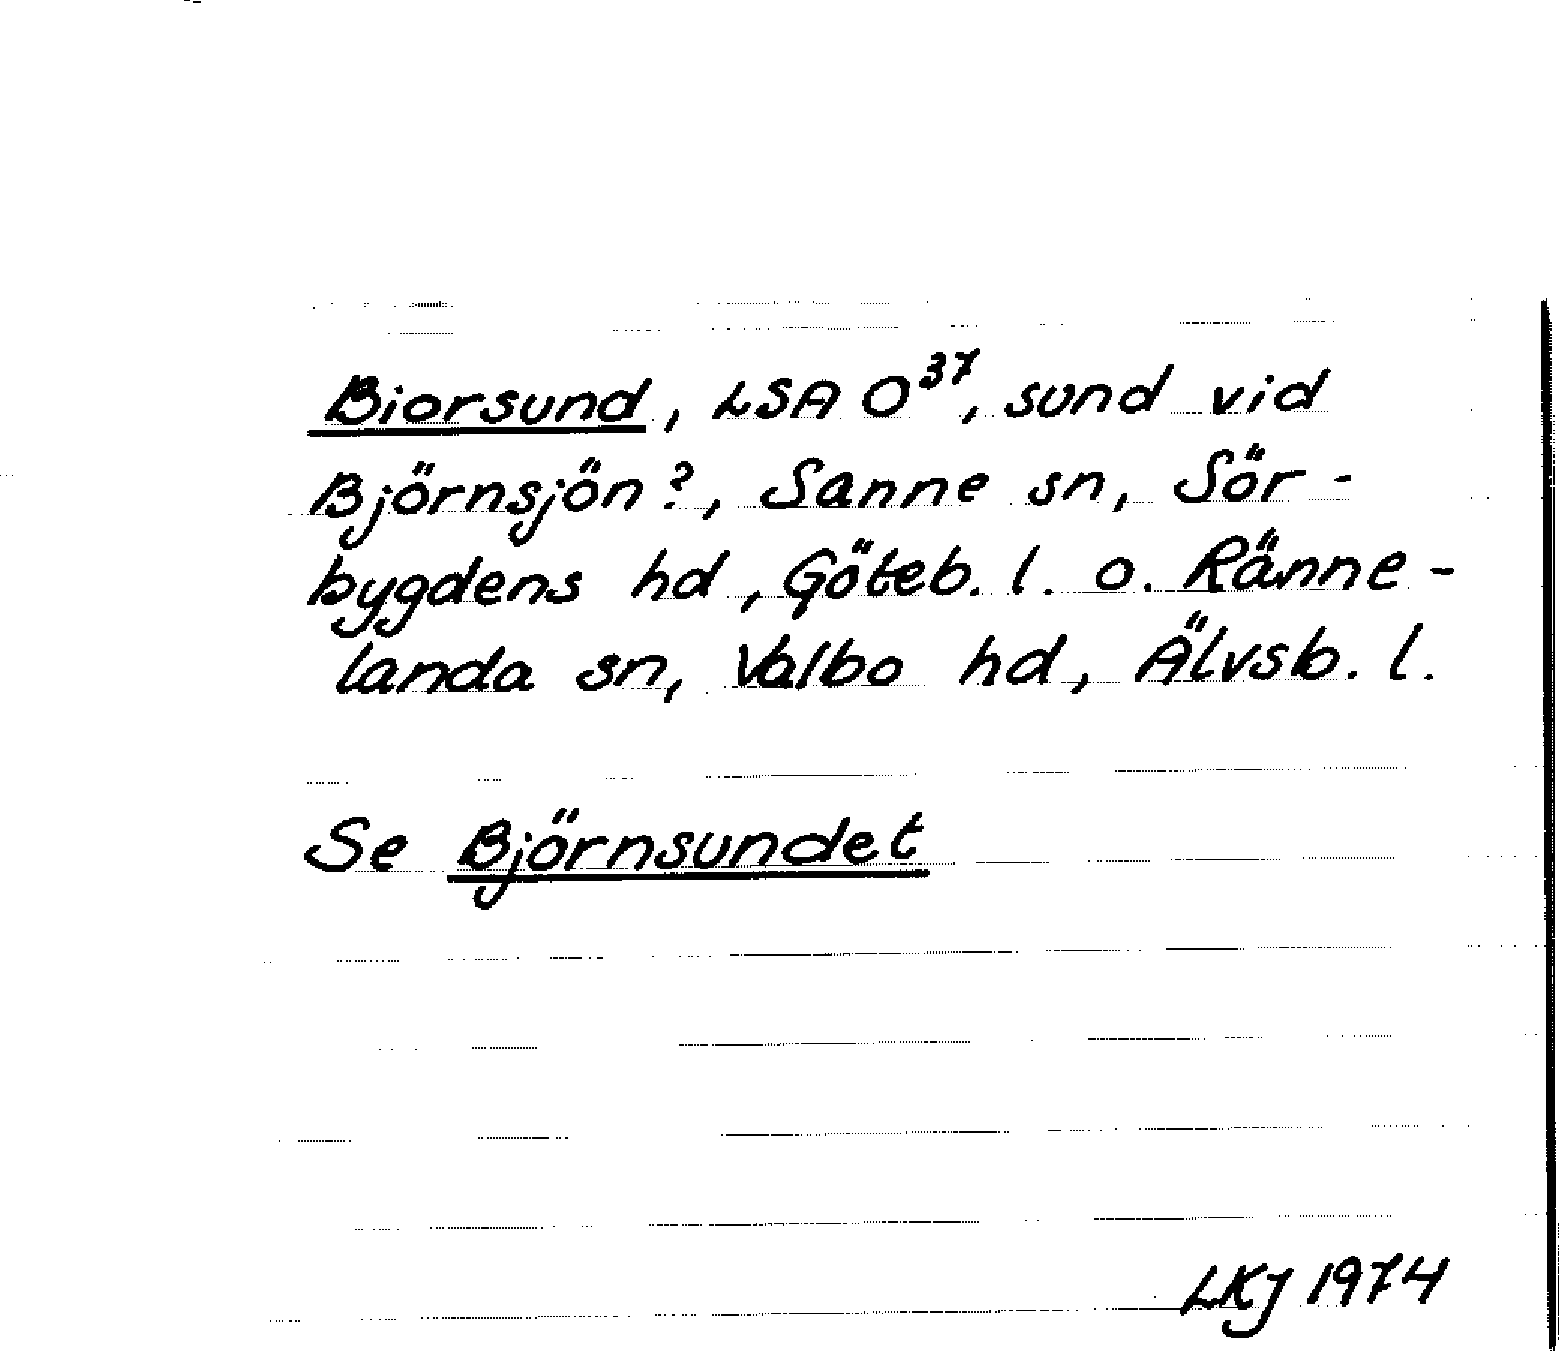 Biorsund, LSA O³⁷, sund vid
Björnsjön?, Sanne sn, Sör-
bygdens hd, Göteb. l. o. Ränne-
landa sn, Valbo hd, Älvsb. l.
Se Björnsundet
LKJ 1974